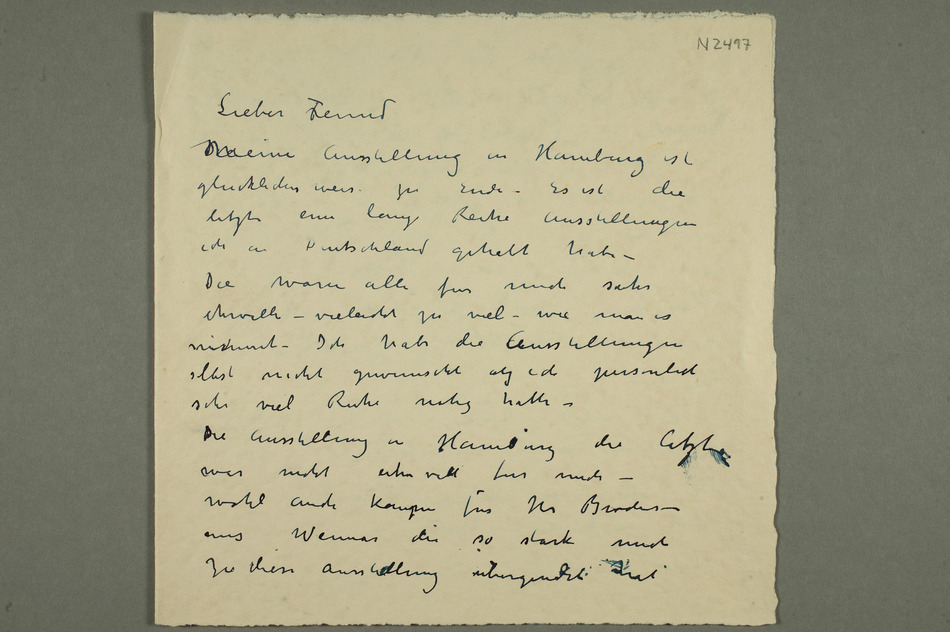 N 2497
Lieber Freund
Meine Ausstellung in Hamburg ist
glucklicherweis. zu Ende – Es ist die
letzte eine lange Reihe Ausstellungen
ich in Deutschland gehabt habe –
Die waren alle fur mich sehr
ehrvolle – vieleicht zu viel – wie man es
nimmt – Ich habe die Ausstellungen
selbst nicht gewunscht ich personlich
sehr viel Ruhe notig hatte –
Die Ausstellung in Hamburg die letzte
war nicht ehrvoll fur mich –
wohl auch kaum für Hr
aus Weimar die so stark mich
zu diese Ausstellung hat